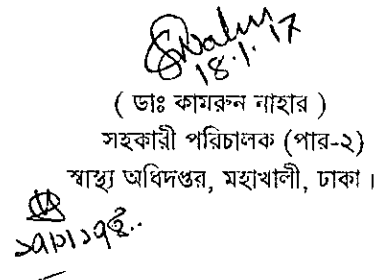 18.1.17
( ডাঃ কামরুন নাহার )
সহকারী পরিচালক (পার-২)
স্বাস্থ্য অধিদপ্তর, মহাখালী, ঢাকা ।